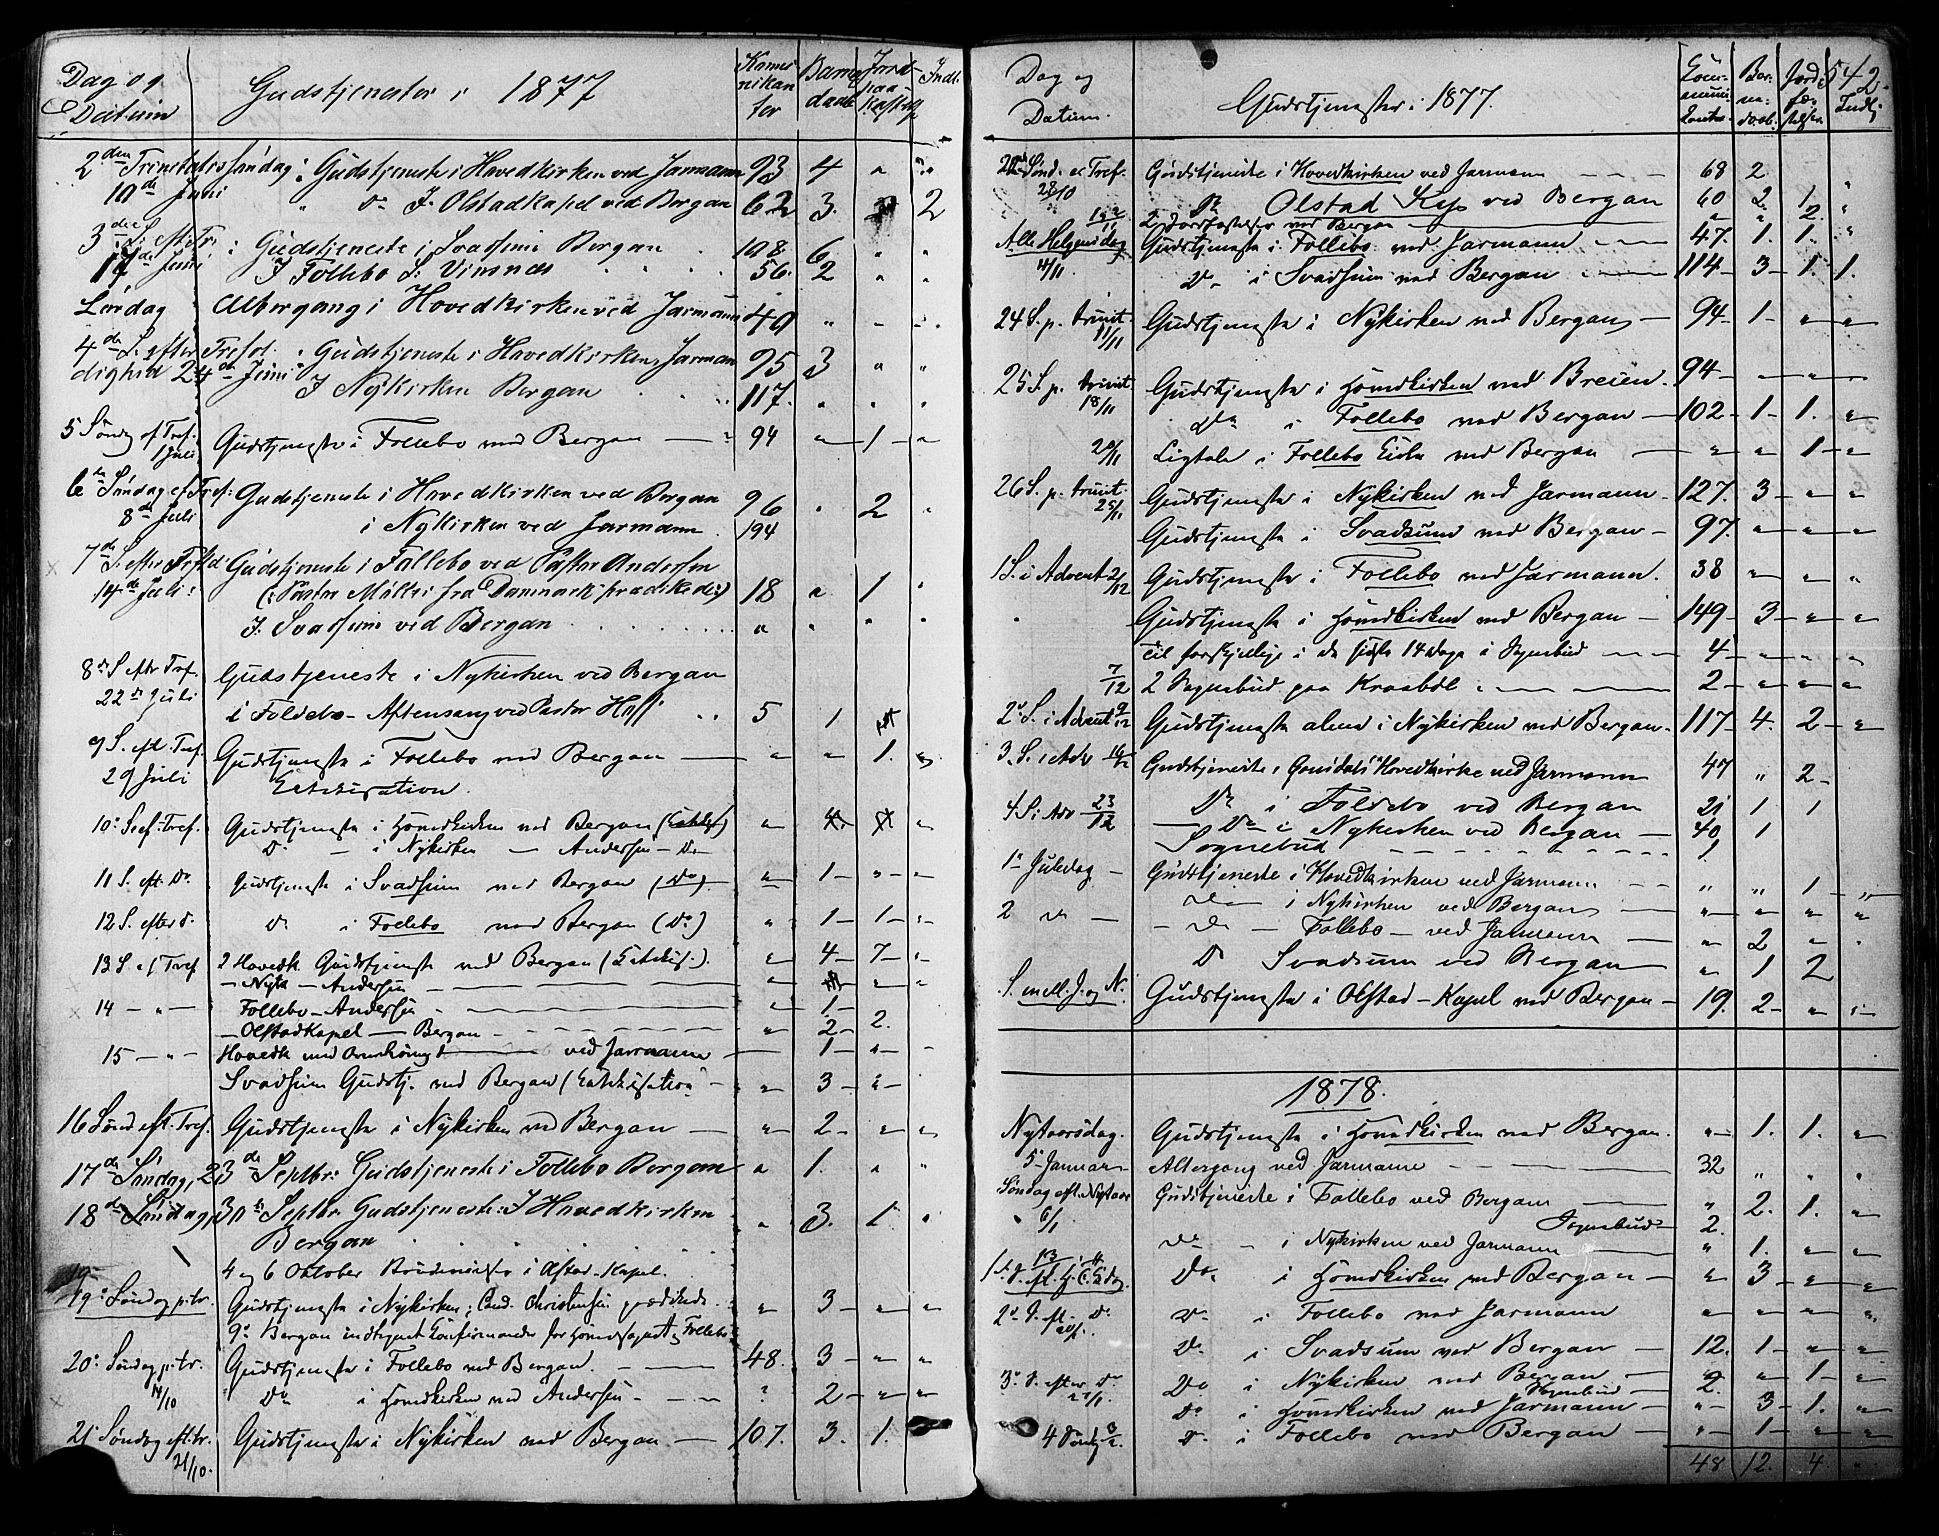 Dag og Datum
Gudstjenester i 1877
Kommunikanter
Barnedaab
Jordpaakastelse
Indl.
2den Trinitatis søndag: Gudstjeneste i Hovedkirken ved Jarmann 93 4 " "
10de Juni " do I Olstadkapel ved Bergan 62 3. 2
3die S. eft. Tr.: Gudstjeneste i Svadsum Bergan 108 6 " "
17de Juni I Follebo S. Vinsnes 56. 2 " "
Lørdag Altergang i Hovedkirken ved Jarmann 40 " " "
4de S. efter Trefol: Gudstjeneste i Hovedkirken Jarmann 95 3 " "
dighed 24de Juni I Nykirken Bergan 117. " " "
5 Søndg ef Tref. 1 Juli Gudstjeneste i Follebo ved Bergan 94 " 1 "
6te Søndag ef Tref: Gudstjeneste i Hovedkirken ved Bergan 96 " 2 "
8de Juli i Nykirken ved Jarmann 194
7de S. efter Trefold Gudstjeneste i Follebo ved Pastor Andersen
14de Juli: (: Pastor Møller fra Danmark prædikede :) 18 " 1 "
I Svadsum ved Bergan " " " "
8de S. efter Tref. Gudstjeneste i Nykirken ved Bergan
22de Juli i Foldebo - Aftensang ved Pastor Hall 5 1
9 S. eft. Tref. Gudstjeneste i Follebo ved Bergan " " 1. "
29 Juli Catekisation.
10de S. ef. Tref. Gudstjeneste i Hovedkirken ved Bergan " "
do - i Nykirken - Andersen - do
11 S. eft. do Gudstjeneste i Svadsum ved Bergan (do) " 1 " "
12 S. efter d. do i Follebo ved Bergan (do) " 1 1 "
13 S. ef Tref 2 Hovedk. Gudstjeneste ved Bergan (Catekis.) " 4 7 "
- Nyk. - Andersen " " "
14 - " - Follebo - Andersen " 1
- Olstadkapel - Bergan " 2 2.
15 - " - Hovedk ved ved Jarmann 1 "
Svadsum Gudstj. ved Bergan (Catekisation) " 3 "
16 Sønd eft. Tref. Gudstjeneste i Nykirken ved Bergan " 2 " "
17de Søndag, 23de Septbr: Gudstjeneste i Follebo Bergan " 1. " "
18de Søndag, 30te Septbr Gudstjeneste: I Hovedkirken " 3. 1 "
Bergan
4 og 6 Oktober i Olstad-Kapel.
19de Søndag p. tr. Gudstjeneste i Nykirken; Cand. Christensen prædikede " 3 " "
9de Bergan indtegnet Confirmander for Hovedsognet og Follebo.
20de Søndag p. tr. Gudstjeneste i Follebo ved Bergan. 48. 3 " "
14/10 Do i Hovedkirken ved Andersen " 2 " "
21de Søndag eft. tr. Gudstjeneste i Nykirken ved Bergan 107. 3. 1.
21/10.
542.
Dag og Datum.
Gudstjenester i 1877.
Communikanter
Barnedaab.
Jordfæstelser
Indl.
Sønd. e Tref. Gudstjeneste i Hovedkirken ved Jarmann 68 2
28/10 Do Olstad Kap ved Bergan 60 2 1 "
2 Jordfæstelser ved Bergan " " 2 "
Alle Helgensdag Gudstjeneste i Follebo ved Jarmann 47. 1. 1. "
4/11 Do i Svadsum ved Bergan 114 3 1. 1.
24 S. p. trinit. 11/11 Gudstjeneste i Nykirken ved Bergan 94 1 " "
25 S. p. trinit. 18/11 Gudstjeneste i Hovedkirken ved Breien. 94 " " "
Do i Follebo ved Bergan 102 1 1. "
20/11 Ligtale i Follebo ved Bergan " " 1 "
26 S. p. trinit. 25/11 Gudstjeneste i Nykirken ved Jarmann 127. 3 " "
Gudstjeneste i Svadsum ved Bergan 97. " " "
1 S. i Advent 2/12 Gudstjeneste i Follebo ved Jarmann. 38 " " "
Gudstjeneste i Hovedkirken ved Bergan 149 3 " "
Til forskjellige i de sidste 14 Dage i Sognebud 4 " " "
7/12 2 Sognebud paa Kraabøl 2 " " "
2de S. i Advent 9/12 Gudstjeneste alene i Nykirken ved Bergan. 117 4. 2 "
3. S. i Adv 16/12 Gudstjeneste i Gausdals Hovedkirke ved Jarmann 47 " 2
4 S: Adv 23/12 Do i Foldebo ved Bergan 21 1 1
Do i Nykirken ved Bergan 40 1
Sognebud 1
1ste Juledag Gudstjeneste i Hovedkirken ved Jarmann " " 1 "
Do i Nykirken ved Bergan " " " "
2 do - do - Follebo - ved Jarmann " 2 " "
Do Svadsum ved Bergan " 1 2
S. mell. J. og N. Gudstjeneste i Olstad - Kapel ved Bergan 19. 2 " "
1878.
Nytaarsdag. Gudstjeneste i Hovedkirken ved Bergan. " 1. 1. "
5 Januar Altergang ved Jarmann 32 " " "
Søndag eft. Nytaar Gudstjeneste i Follebo ved Bergan " 2. 1. "
6/1 Sognebud 2.
do i Nykirken ved Jarmann " 1. " "
13/1 Do i Hovedkirken ved Bergan " 3 " "
2de S. eft. do 20/1. do i Follebo ved Jarmann " " " "
do i Svadsum ved Bergan 12. 1 " "
3de S. efter do 27/1 Do i Nykirken ved Bergan " " 1 "
Sognebud 2.
do i Hovedkirken ved Jarmann " 3 1. "
4 Søndg 3/2. do i Follebo ved Bergan " 1 " "
48 12. 4. "